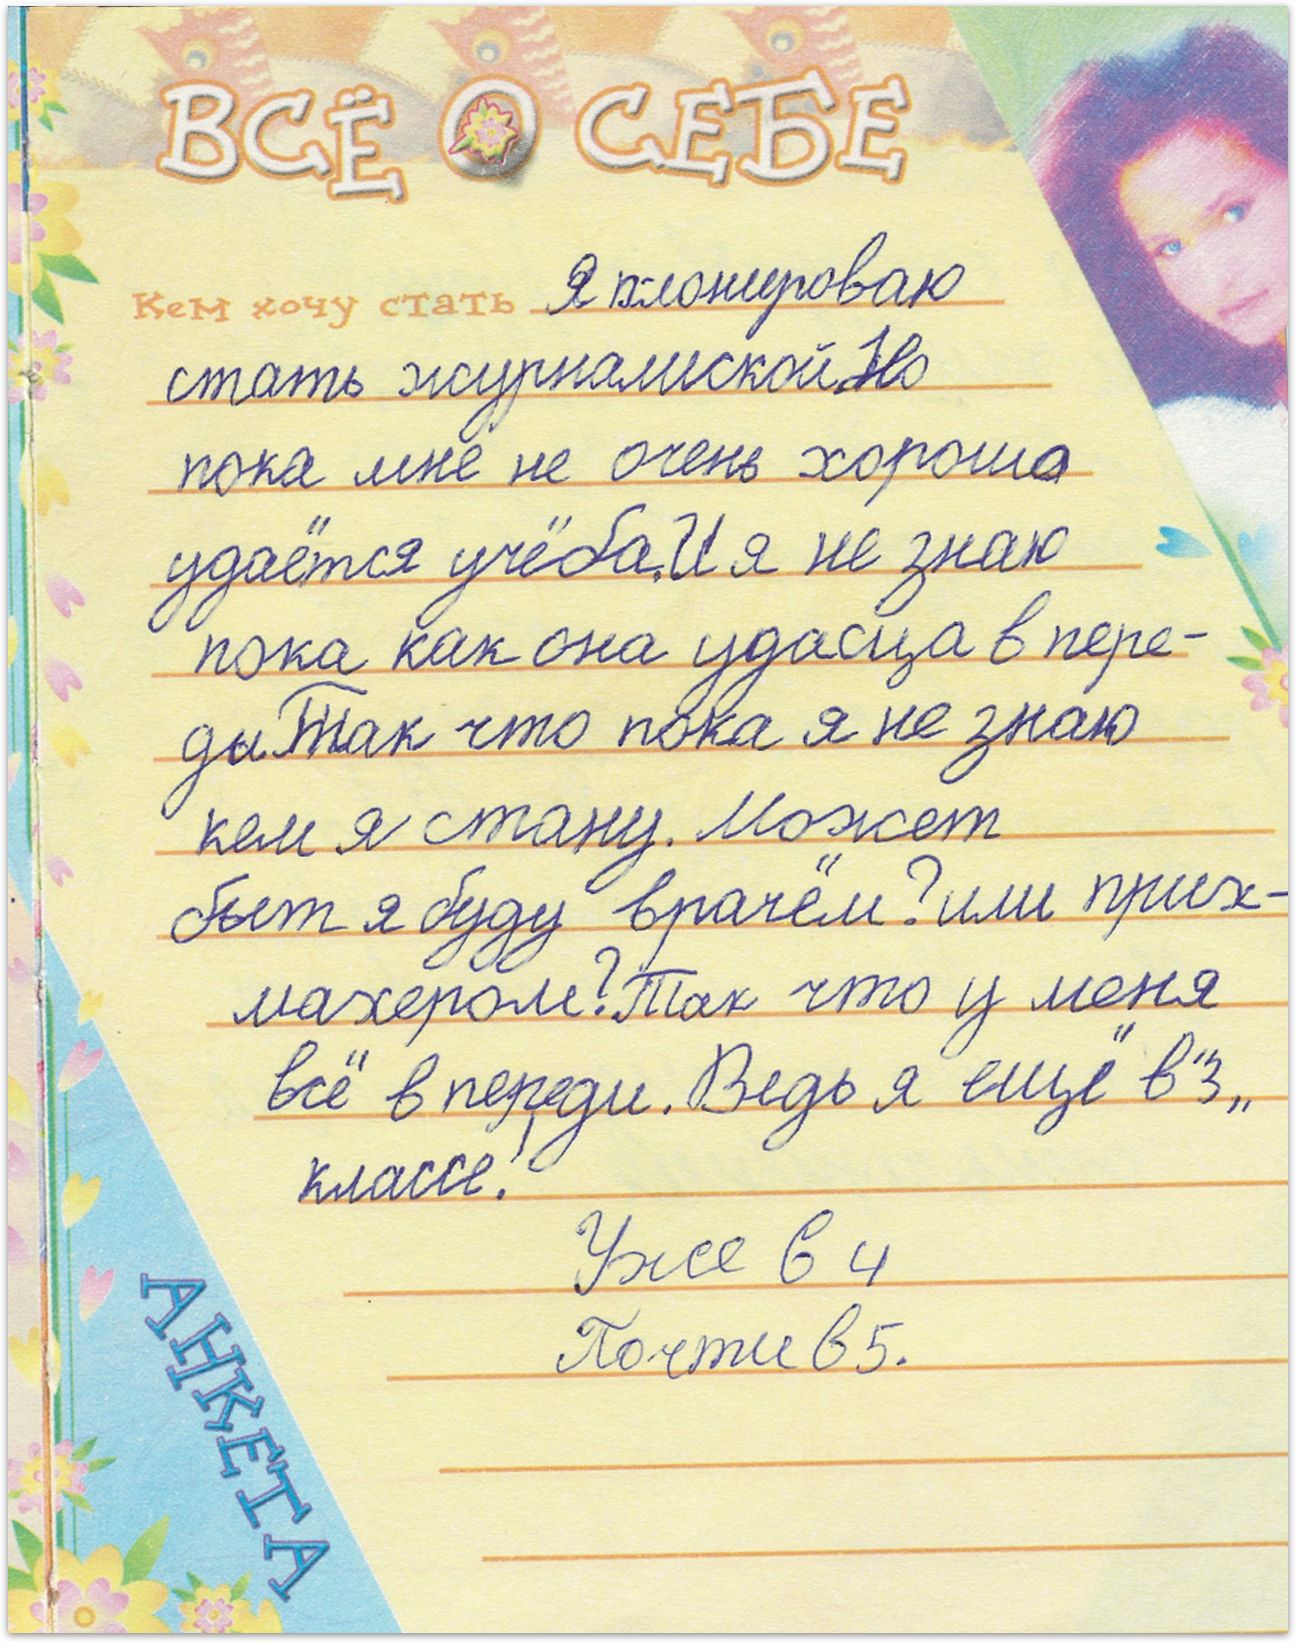 ВСЁ О СЕБЕ
Кем хочу стать Я плонироваю
стать журналиской. Но
пока мне не очень хорошо
удаётся учёба. И я не знаю
пока как она удасца в пере-
ди. Так что пока я не знаю
кем я стану. Может
быт я буду врачём? илиприх-
махером? Так что у меня
всё в переди. Ведь я ещё в "3„
классе!
Уже в 4
Почти в 5.
АНКЕТА